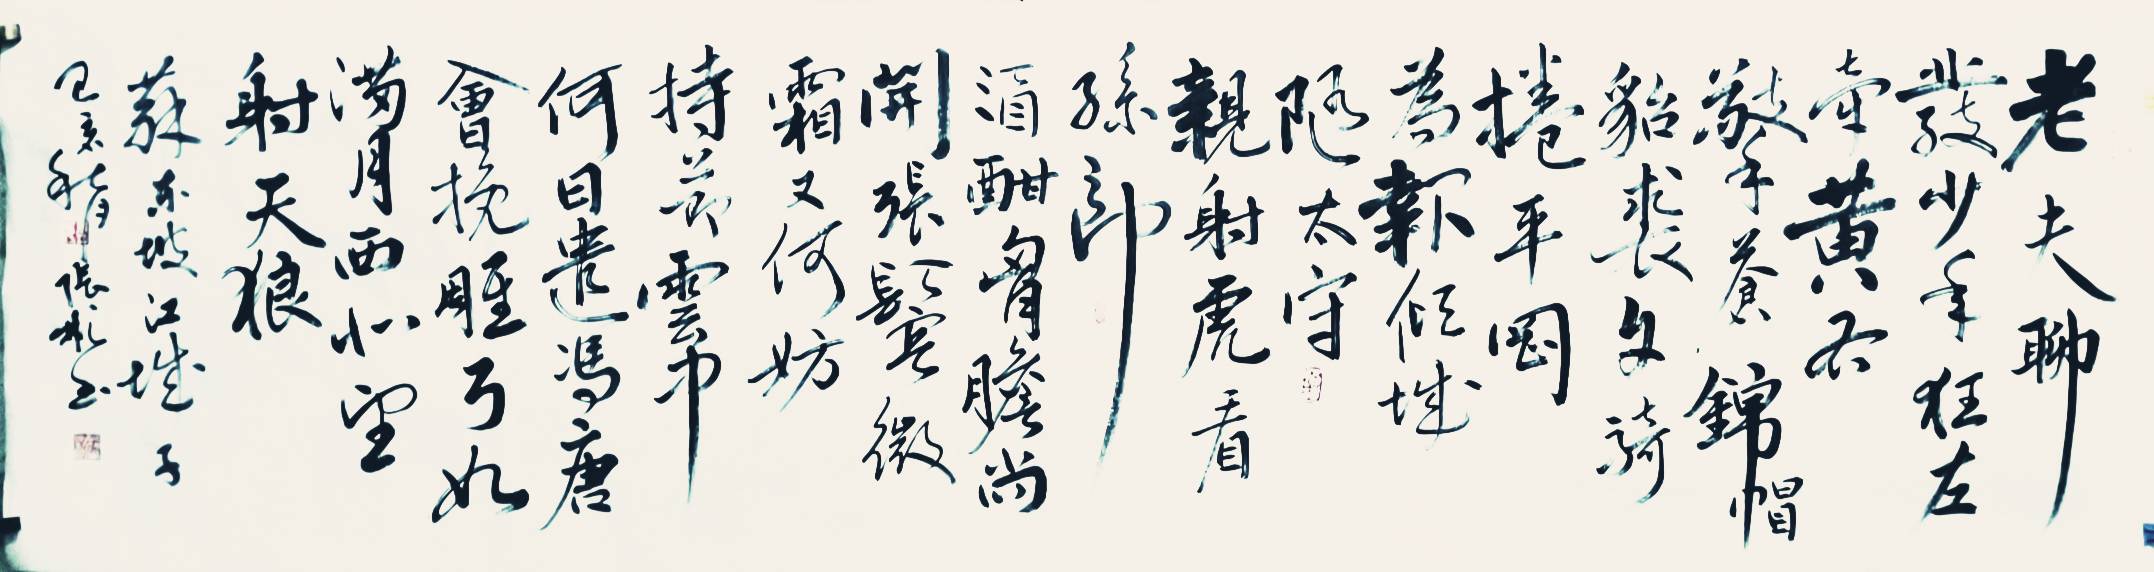 老夫聊
發少年狂左
牽黃右
擎蒼錦帽
貂裘騎
捲平岡
為報傾城
隨太守
親射虎看
孫郎
酒酣胸膽尚
開張鬢微
霜又何妨
持節雲中
何日遣馮唐
會挽雕弓如
滿月西北望
射天狼
蘇東坡江城子
己亥秋月張書